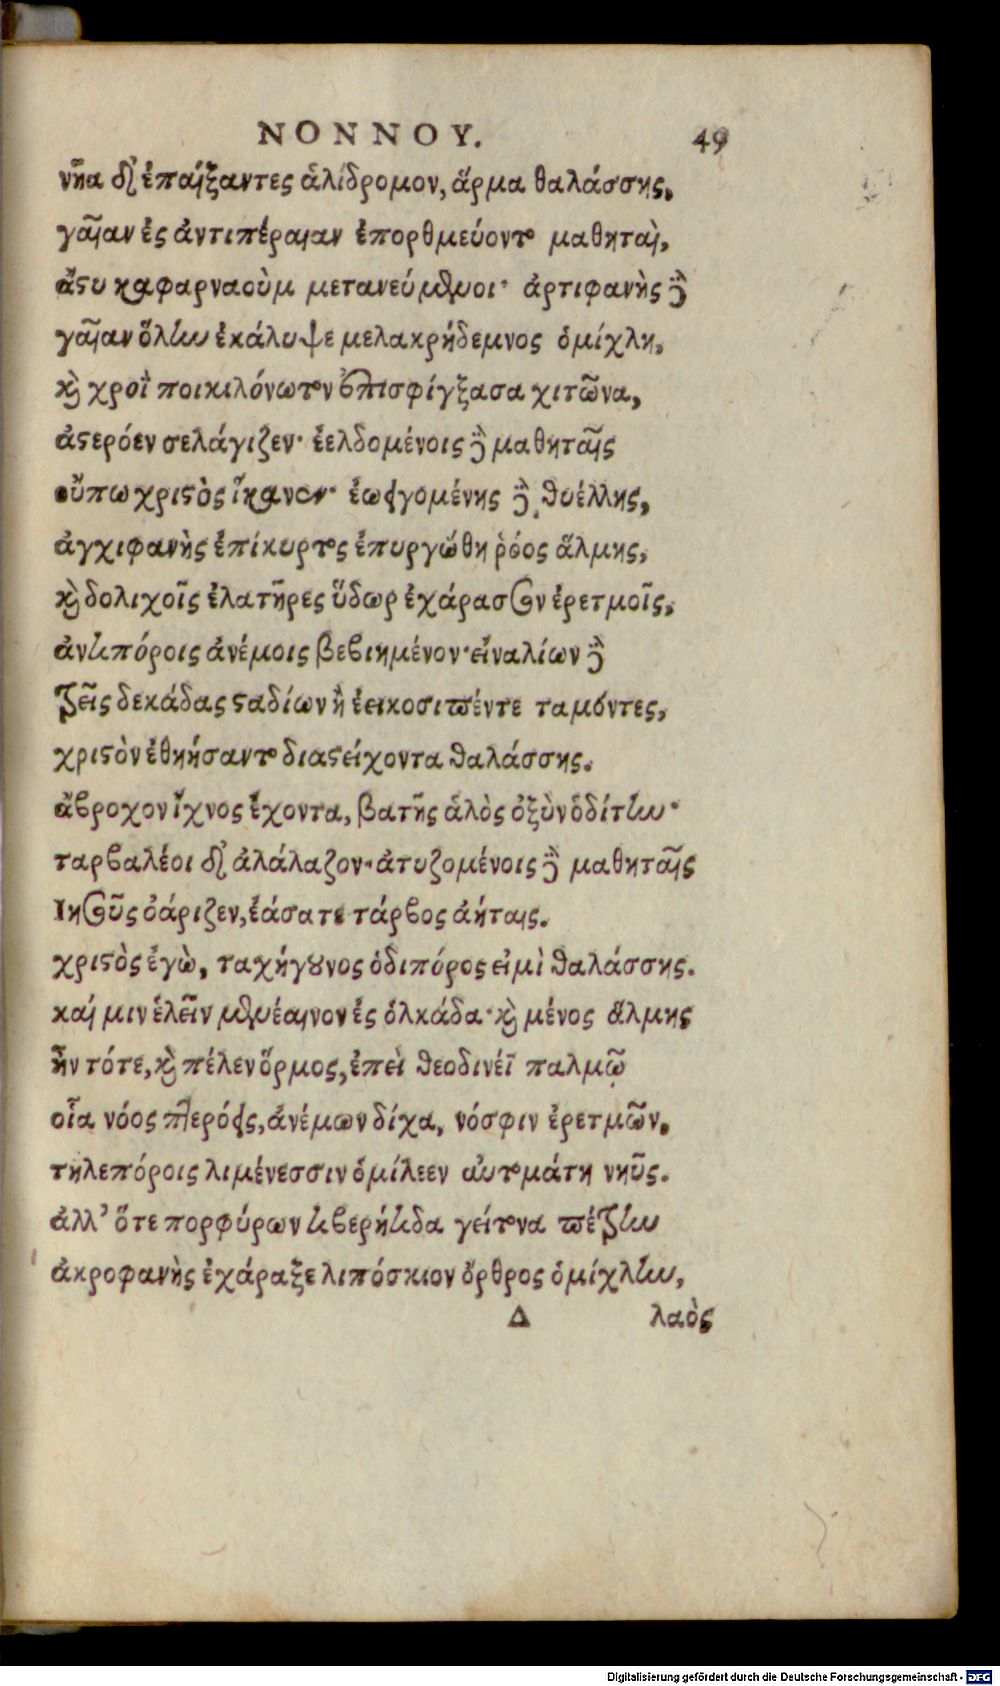 ΝΟΝΝΟΥ. 49
νῆα δ' ἐπαΐξαντες ἁλίδρομον, ἅρμα θαλάσσης,
γαῖαν ἐς ἀντιπέραιαν ἐπορθμεύοντο μαθηταὶ,
ἄςυ καφαρναοὺμ μετανεύμενοι· ἀρτιφανὴς δὲ
γαῖαν ὅλην ἐκάλυψε μελακρήδεμνος ὀμίχλη,
καὶ χροῒ ποικιλόνωτον ἐπισφίγξασα χιτῶνα,
ἀςερόεν σελάγιζεν· ἐελδομένοις δὲ μαθηταῖς
οὔπω χριςὸς ἵκανεν· ἐπειγομένης δὲ θυέλλης,
ἀγχιφανὴς ἐπίκυρτος ἐπυργώθη ῥόος ἅλμης,
καὶ δολιχοῖς ἐλατῆρες ὕδωρ ἐχάρασσον ἐρετμοῖς,
ἀντιπόροις ἀνέμοις βεβιημένον· εἰναλίων δὲ
τρεῖς δεκάδας ςαδίων ἢ ἐεικοσιπέντε ταμόντες,
χριςὸν ἐθηήσαντο διαςείχοντα θαλάσσης.
ἄβροχον ἴχνος ἔχοντα, βατῆς ἁλὸς ὀξὺν ὁδίτην·
ταρβαλέοι δ' ἀλάλαζον· ἀτυζομένοις δὲ μαθηταῖς
Ἰησοῦς ὀάριζεν, ἐάσατε τάρβος ἀήταις.
χριςὸς ἐγὼ, ταχήγουνος ὁδιπόρος εἰμὶ θαλάσσης.
καί μιν ἑλεῖν μενέαινον ἐς ὁλκάδα· καὶ μένος ἅλμης
ἦν τότε, καὶ πέλεν ὅρμος, ἐπεὶ θεοδινέϊ παλμῷ
οἷα νόος πτερόεις, ἀνέμων δίχα, νόσφιν ἐρετμῶν.
τηλεπόροις λιμένεσσιν ὁμίλεεν αὐτομάτη νηῦς.
ἀλλ' ὅτε πορφύρων τιβερήτιδα γείτονα πέτρην
ἀκροφανὴς ἐχάραξε λιπόσκιον ὄρθρος ὀμίχλην,
Δ λαὸς
Digitalisierung gefördert durch die Deutsche Forschungsgemeinschaft - DFG